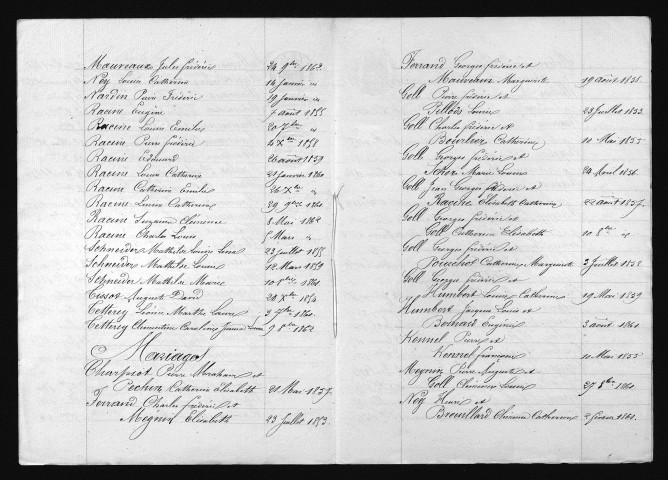 Mauveaux Jules frédéric 24 9bre 1862
Ney Louise Catherine 14 Janvier "
Nardin Pierre Frédéric 19 Janvier "
Racine Eugène 7 août 1855
Racine Louise Emilie 20 7bre "
Racine Pierre frédéric 6 Xbre 1858
Racine Edouard 26 août 1859
Racine Louise Catherine 21 janvier 1860
Racine Catherine Emilie 26 Xbre "
Racine Louise Catherine 29 9bre 1861
Racine Suzanne Clémence 8 Mai 1862
Racine Charles Louis 5 Mars "
Schneider Mathilde Louise Lina 23 juillet 1855
Schneider Mathilde Louise 12 Mars 1859
Schneider Mathilde Marie 10 8bre 1861
Tissot Auguste David 20 Xbre 1854
Louise Marthe Laure 3 7bre 1860
Clémentine Caroline Lina 9 8bre 1862
Mariages
Charpiot Pierre Abraham et
Pechin Catherine Elisabeth 21 Mai 1857
Ferrand Charles frédéric et
Mégnin Elisabeth 23 Juillet 1853
Ferrand Georges frédéric et
Mauveaux Marguerite 19 août 1851
Goll Pierre frédéric et
Louise 23 Juillet 1853
Goll Charles frédéric et
Bourlier Catherine 10 Mai 1855
Goll Georges frédéric et
Marie Louise 24 Avril 1856
Goll Jean Georges frédéric et
Racine Elisabeth Catherine 22 août 1857
Goll Georges frédéric et
Goll Catherine Elisabeth 10 8bre "
Goll Georges frédéric et
Catherine Marguerite 3 Juillet 1858
Goll Georges frédéric et
Humbert Louise Catherine 19 Mai 1859
Humbert Jacques Louis et
Eugénie 3 août 1861
Kennel Pierre et
Kennel françoise 10 Mai 1855
Mégnin Pierre Auguste et
Goll Louise 27 8bre 1860
Ney Henri et
Brouillard Catherine 2 février 1861